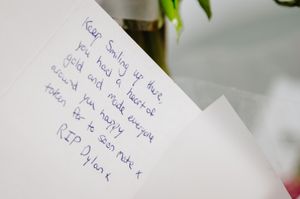 Keep Smiling up there,
you had a heart of
gold and made everyone
around you happy
token far to soon mate x
RIP Dylan x